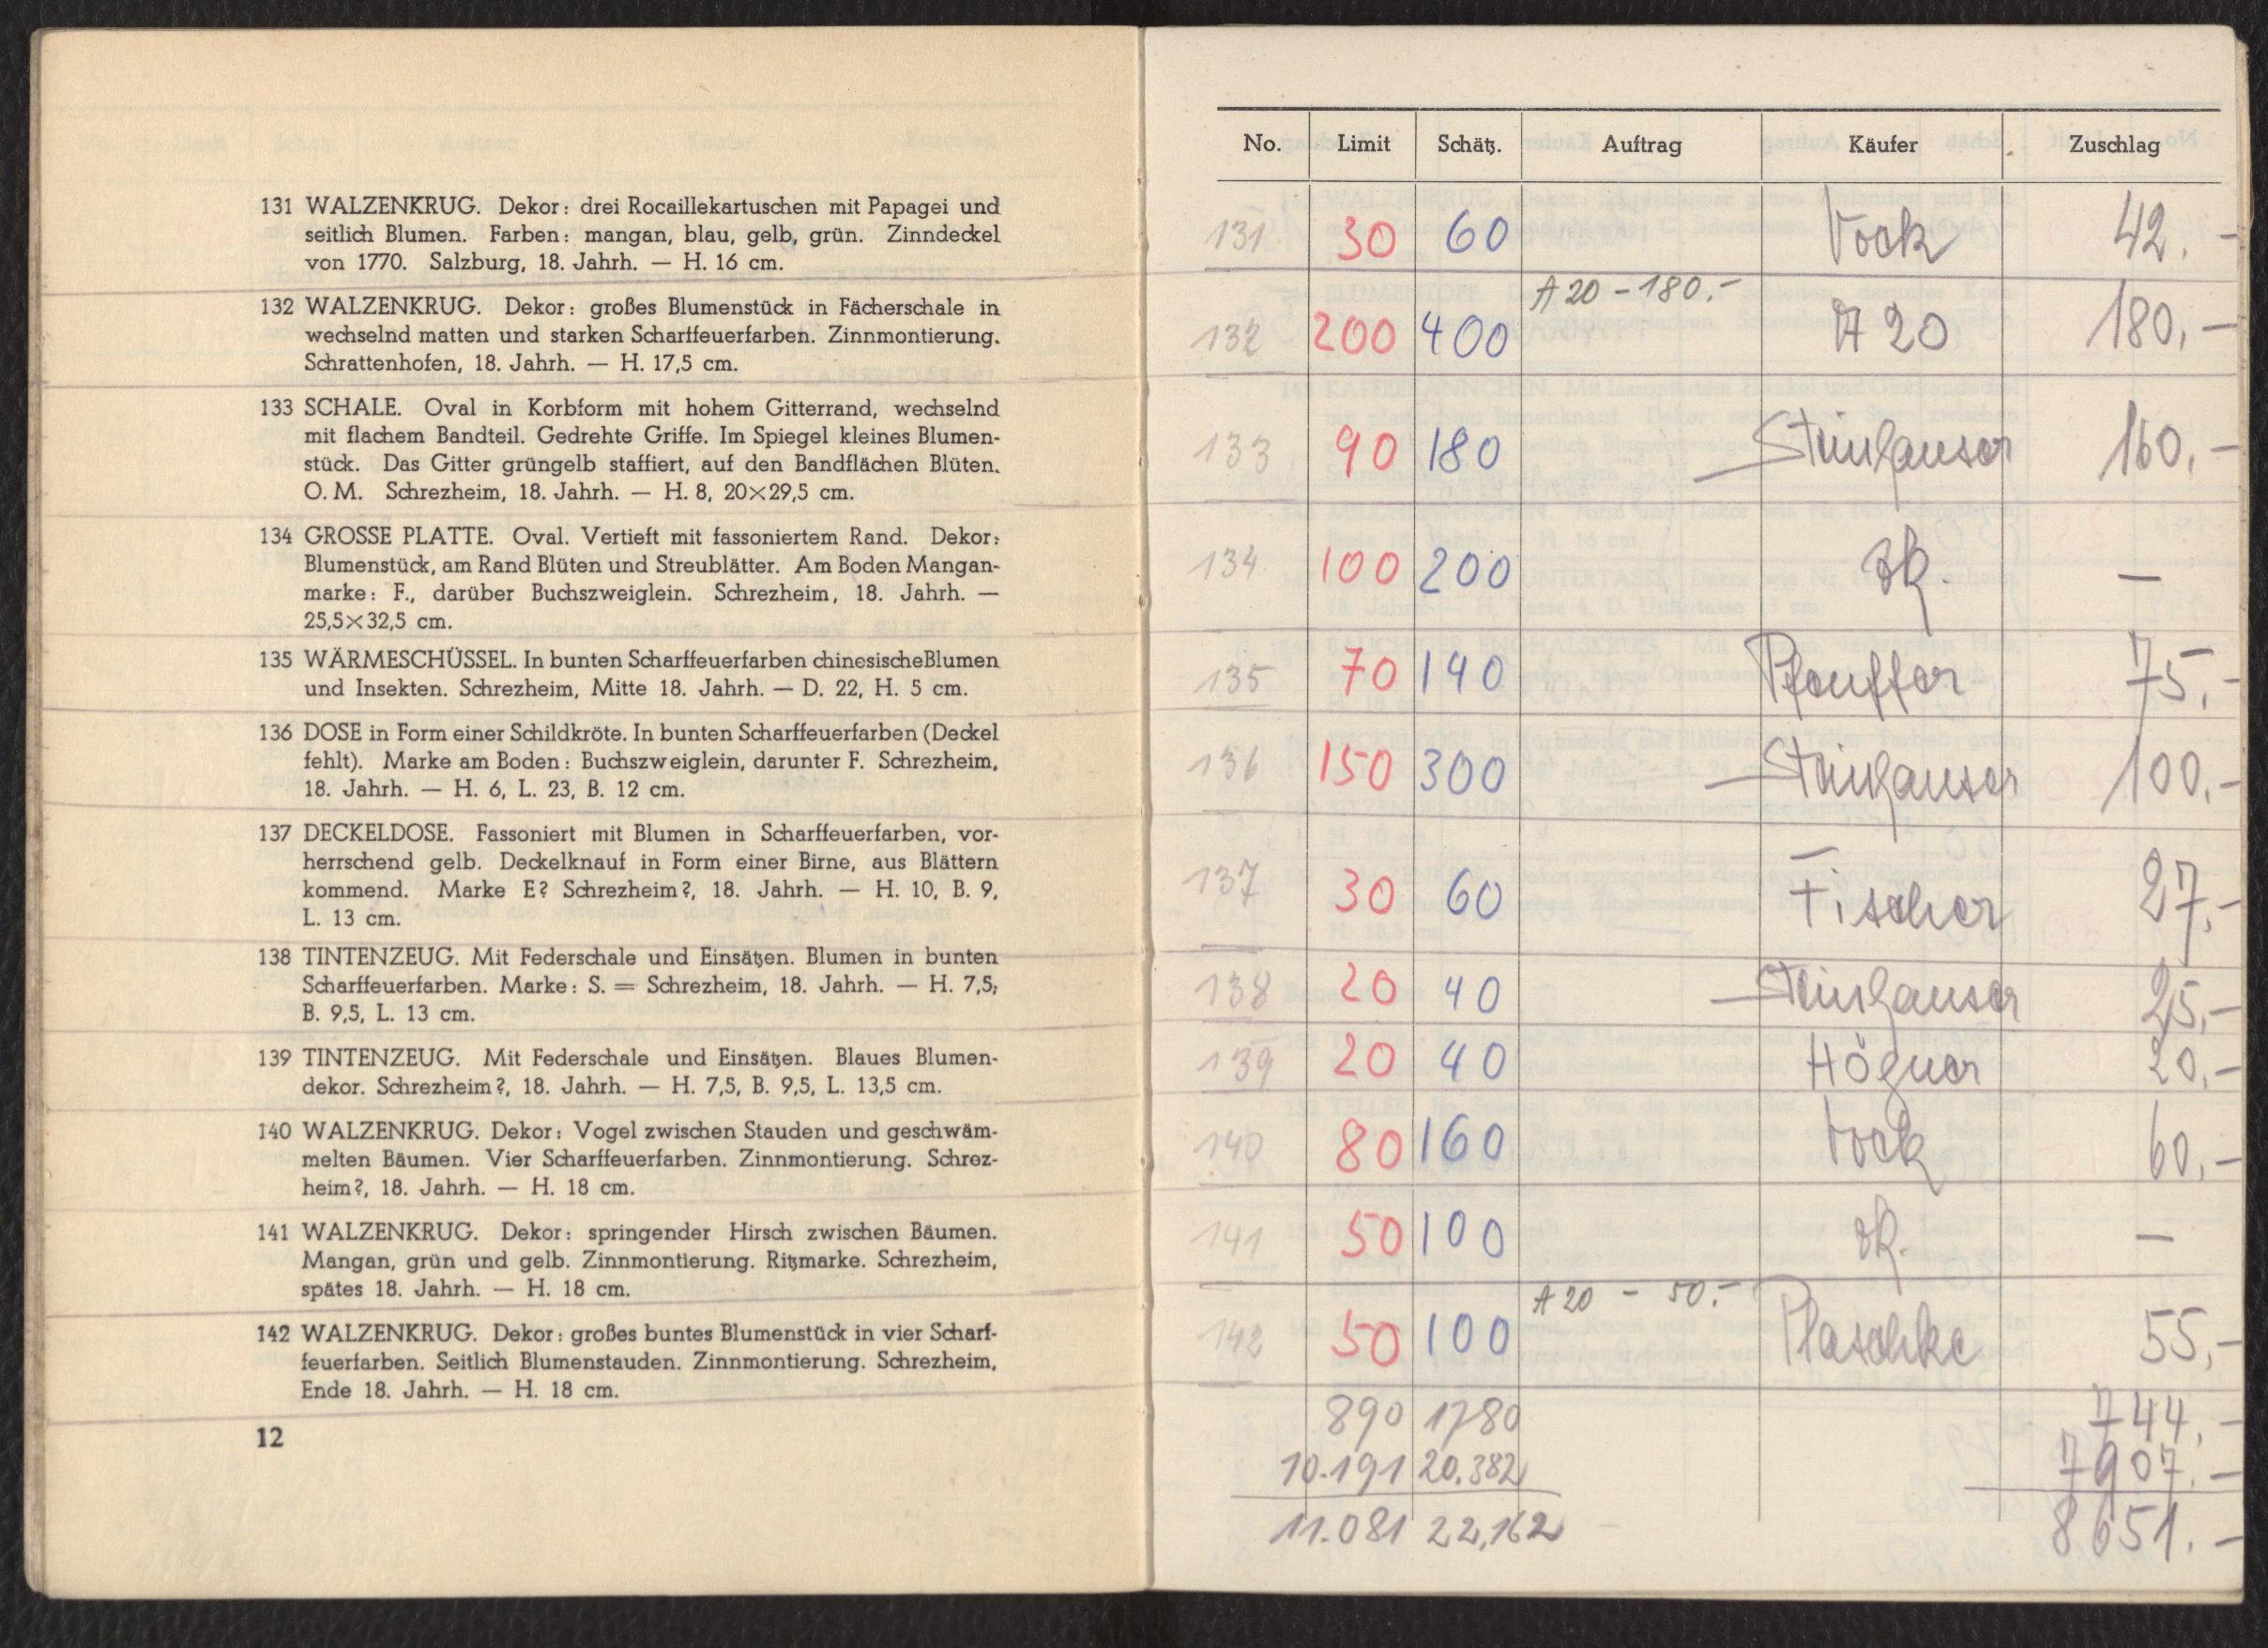 131 WALZENKRUG. Dekor: drei Rocaillekartuschen mit Papagei und
seitlich Blumen. Farben: mangan, blau, gelb, grün. Zinndeckel
von 1770. Salzburg, 18. Jahrh. — H. 16 cm.
132 WALZENKRUG. Dekor: großes Blumenstück in Fächerschale in
wechselnd matten und starken Scharffeuerfarben. Zinnmontierung.
Schrattenhofen, 18. Jahrh. — H. 17,5 cm.
133 SCHALE. Oval in Korbform mit hohem Gitterrand, wechselnd
mit flachem Bandteil. Gedrehte Griffe. Im Spiegel kleines Blumen-
stück. Das Gitter grüngelb staffiert, auf den Bandflächen Blüten.
O. M. Schrezheim, 18. Jahrh. — H. 8, 20×29,5 cm.
134 GROSSE PLATTE. Oval. Vertieft mit fassoniertem Rand. Dekor:
Blumenstück, am Rand Blüten und Streublätter. Am Boden Mangan-
marke: F., darüber Buchszweiglein. Schrezheim, 18. Jahrh. —
25,5×32,5 cm.
135 WÄRMESCHÜSSEL. In bunten Scharffeuerfarben chinesischeBlumen
und Insekten. Schrezheim, Mitte 18. Jahrh. — D. 22, H. 5 cm.
136 DOSE in Form einer Schildkröte. In bunten Scharffeuerfarben (Deckel
fehlt). Marke am Boden: Buchszweiglein, darunter F. Schrezheim,
18. Jahrh. — H. 6, L. 23, B. 12 cm.
137 DECKELDOSE. Fassoniert mit Blumen in Scharffeuerfarben, vor-
herrschend gelb. Deckelknauf in Form einer Birne, aus Blättern
kommend. Marke E? Schrezheim?, 18. Jahrh. — H. 10, B. 9,
L. 13 cm.
138 TINTENZEUG. Mit Federschale und Einsätzen. Blumen in bunten
Scharffeuerfarben. Marke: S. = Schrezheim, 18. Jahrh. — H. 7,5,
B. 9,5, L. 13 cm.
139 TINTENZEUG. Mit Federschale und Einsätzen. Blaues Blumen-
dekor. Schrezheim?, 18. Jahrh. — H. 7,5, B. 9,5, L. 13,5 cm.
140 WALZENKRUG. Dekor: Vogel zwischen Stauden und geschwäm-
melten Bäumen. Vier Scharffeuerfarben. Zinnmontierung. Schrez-
heim?, 18. Jahrh. — H. 18 cm.
141 WALZENKRUG. Dekor: springender Hirsch zwischen Bäumen.
Mangan, grün und gelb. Zinnmontierung. Ritzmarke. Schrezheim,
spätes 18. Jahrh. — H. 18 cm.
142 WALZENKRUG. Dekor: großes buntes Blumenstück in vier Scharf-
feuerfarben. Seitlich Blumenstauden. Zinnmontierung. Schrezheim,
Ende 18. Jahrh. — H. 18 cm.
12
No. Limit Schätz. Auftrag Käufer Zuschlag
131 30 60 Vock 42.-
A 20 - 180.-
132 200 400 A 20 180.-
133 90 180 Steinhauser 160.-
134 100 200 zk. —
135 70 140 Pfeuffer 75.-
136 150 300 Steinhauser 100.-
137 30 60 Fischer 27.-
138 20 40 Steinhauser 25.-
139 20 40 Högner 20.-
140 80 160 Vock 60.-
141 50 100 zk. —
A 20 - 50.-
142 50 100 Plaschke 55.-
890 1780 744.-
10.191 20.382 7907.-
11.081 22,162 8651.-